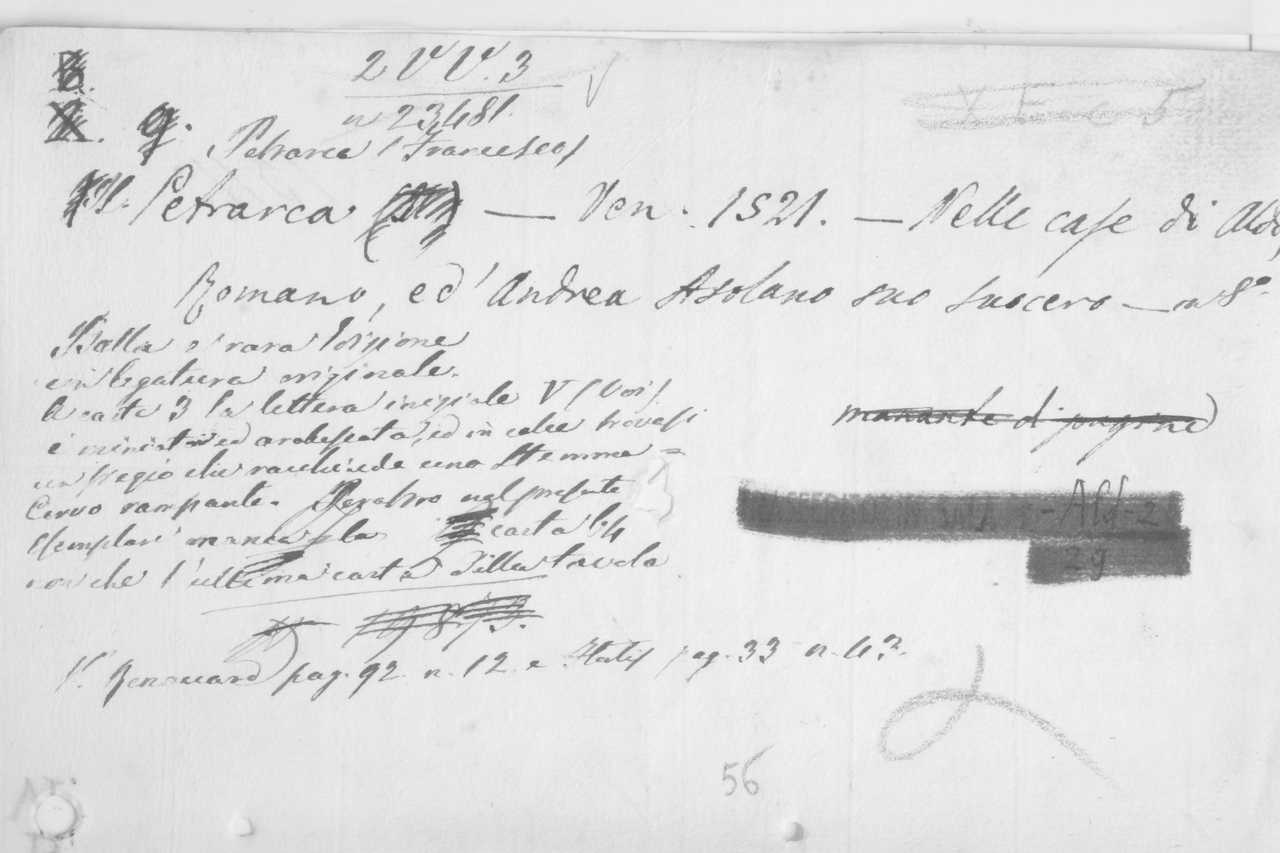 B.
2 V V. 3
X. g.
n 23481.
Petrarca (Francesco)
Il Petrarca — Ven. 1521. — Nelle case di Aldo
Romano, ed' Andrea Asolano suo suocero — in 8°
Bella e rara edizione
in legatura originale.
A carte 3 la lettera iniziale V (Voi)
è miniata ed arabescata, ed in calce trovasi
un fregio che racchiude uno stemma =
Cervo rampante. Peraltro nel presente
esemplare manca la carta 64
non che l'ultima carta della tavola
mancante di pagine
- Ald - 2
29
V. Renouard pag. 92 n. 12. e pag. 33 n. 43.
56